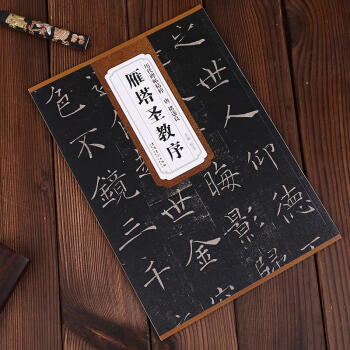 历代碑帖精粹
唐 褚遂良
雁塔圣教序
之世人仰德
晦影歸
世金容
色不鏡三千